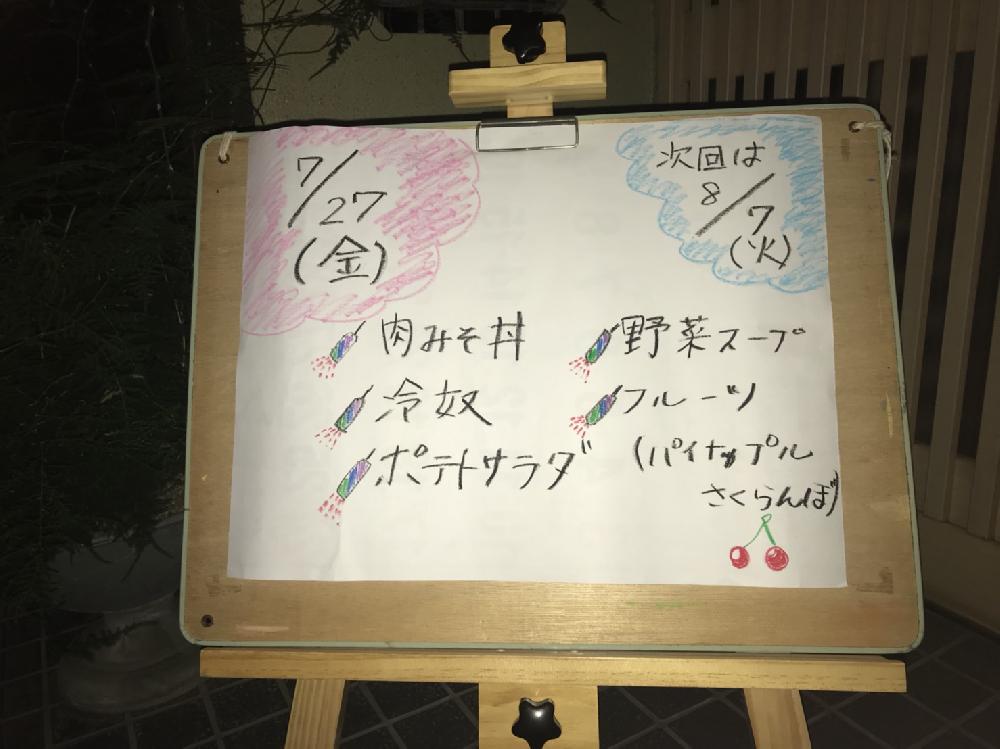 7/27
(金)
次回は
8/7
(火)
肉みそ丼
冷奴
ポテトサラダ
野菜スープ
フルーツ
(パイナップル
さくらんぼ)